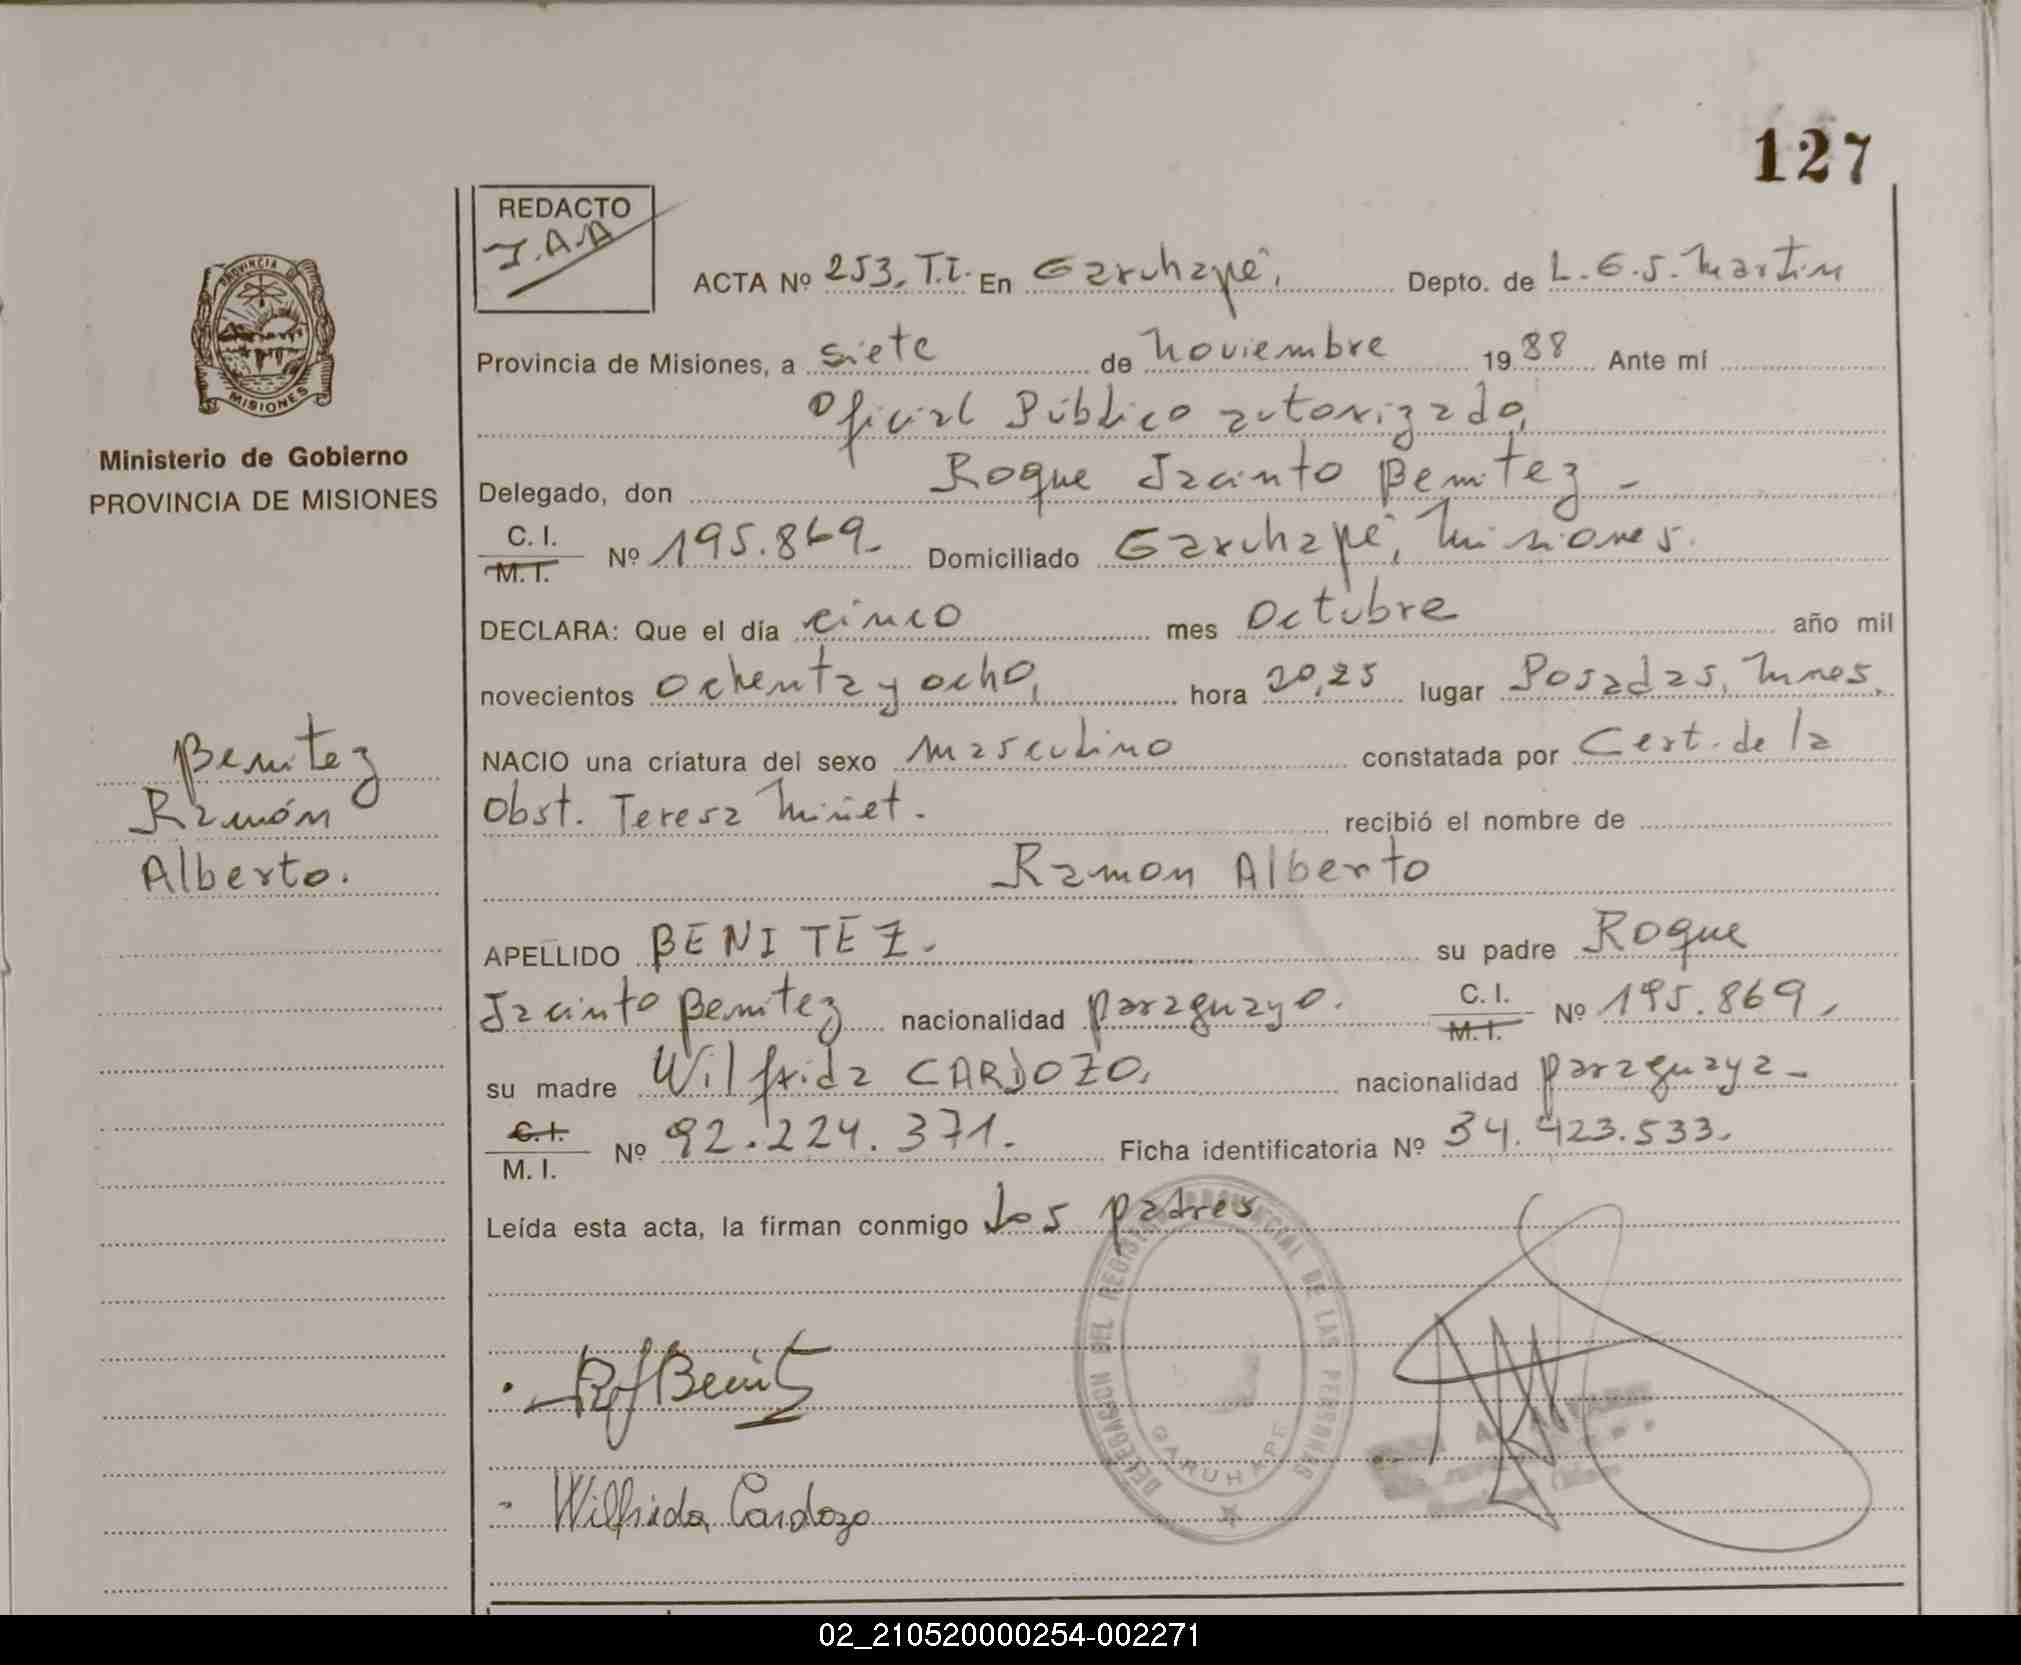 127
REDACTO
J.A.A
ACTA Nº 253. T.I. En Garuhapé, Depto. de L.G.S. Martin
Provincia de Misiones, a siete de noviembre 1988 Ante mí
Oficial Público autorizado,
Delegado, don Roque Jacinto Benitez -
C. I.
M. I.
Nº 195.869.- Domiciliado Garuhapé, Misiones.
DECLARA: Que el día cinco mes Octubre año mil
novecientos ochenta y ocho, hora 20,25 lugar Posadas, Mnes.
NACIO una criatura del sexo masculino constatada por Cert. de la
Obst. Teresa Miñet. recibió el nombre de
Ramon Alberto
APELLIDO BENITEZ. su padre Roque
Jacinto Benitez nacionalidad paraguayo. C. I. M. I. Nº 195.869,
su madre Wilfrida CARDOZO, nacionalidad paraguaya -
C. I.
M. I.
Nº 92.224.371. Ficha identificatoria Nº 34.423.533.
Leída esta acta, la firman conmigo los padres
PROVINCIA DE
MISIONES
Ministerio de Gobierno
PROVINCIA DE MISIONES
Benitez
Ramón
Alberto.
RJBenitez
Wilfrida Cardozo
DELEGACION DEL REGISTRO PROVINCIAL DE LAS PERSONAS
GARUHAPE
02_210520000254-002271